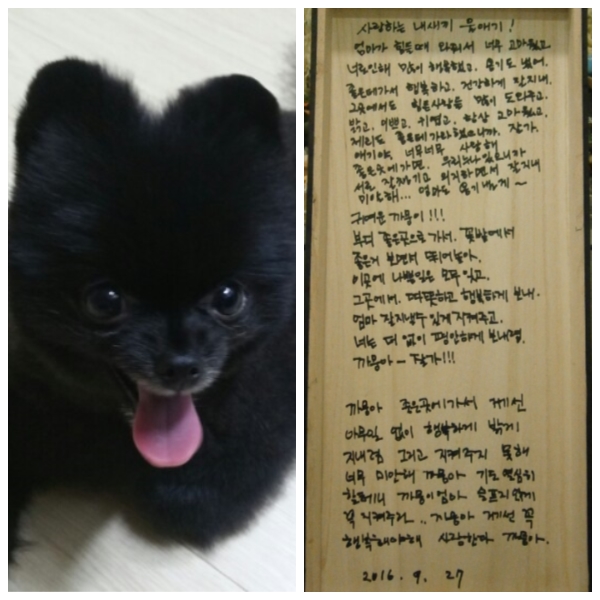 사랑하는 내새끼 웅애기!
엄마가 힘든때 와줘서 너무 고마웠고
너로인해 많이 행복했고. 용기도 냈어.
좋은데가서 행복하고. 건강하게 잘지내.
그곳에서도 힘든사람들 많이 도와주고.
밝고. 이쁘고. 귀엽고. 항상 고마웠고.
제리도 좋은데 가라했으니까. 잘가.
애기야. 너무너무 사랑해
좋은곳에가면. 우리 있으니까
서로 잘챙기고 의지하면서 잘지내
미안해... 엄마도 용기낼게~
귀여운 까몽이!!!
부디 좋은곳으로 가서. 꽃밭에서
좋은거 보면서 뛰어놀아.
이곳에 나빴던일은 모두 잊고.
그곳에서. 따뜻하고 행복하게 보내.
엄마 잘지낼수있게 지켜주고.
너는 더 없이 편안하게 보내렴.
까몽아 - 잘가!!!
까몽아 좋은곳에가서 거기선
아무일 없이 행복하게 밝게
지내렴 그리고 지켜주지 못해
너무 미안해 까몽아 기도 열심히
할테니 까몽이엄마 슬프지않게
꼭 지켜주라.. 까몽아 거기선 꼭
행복해야해 사랑한다 까몽아.
2016. 9. 27